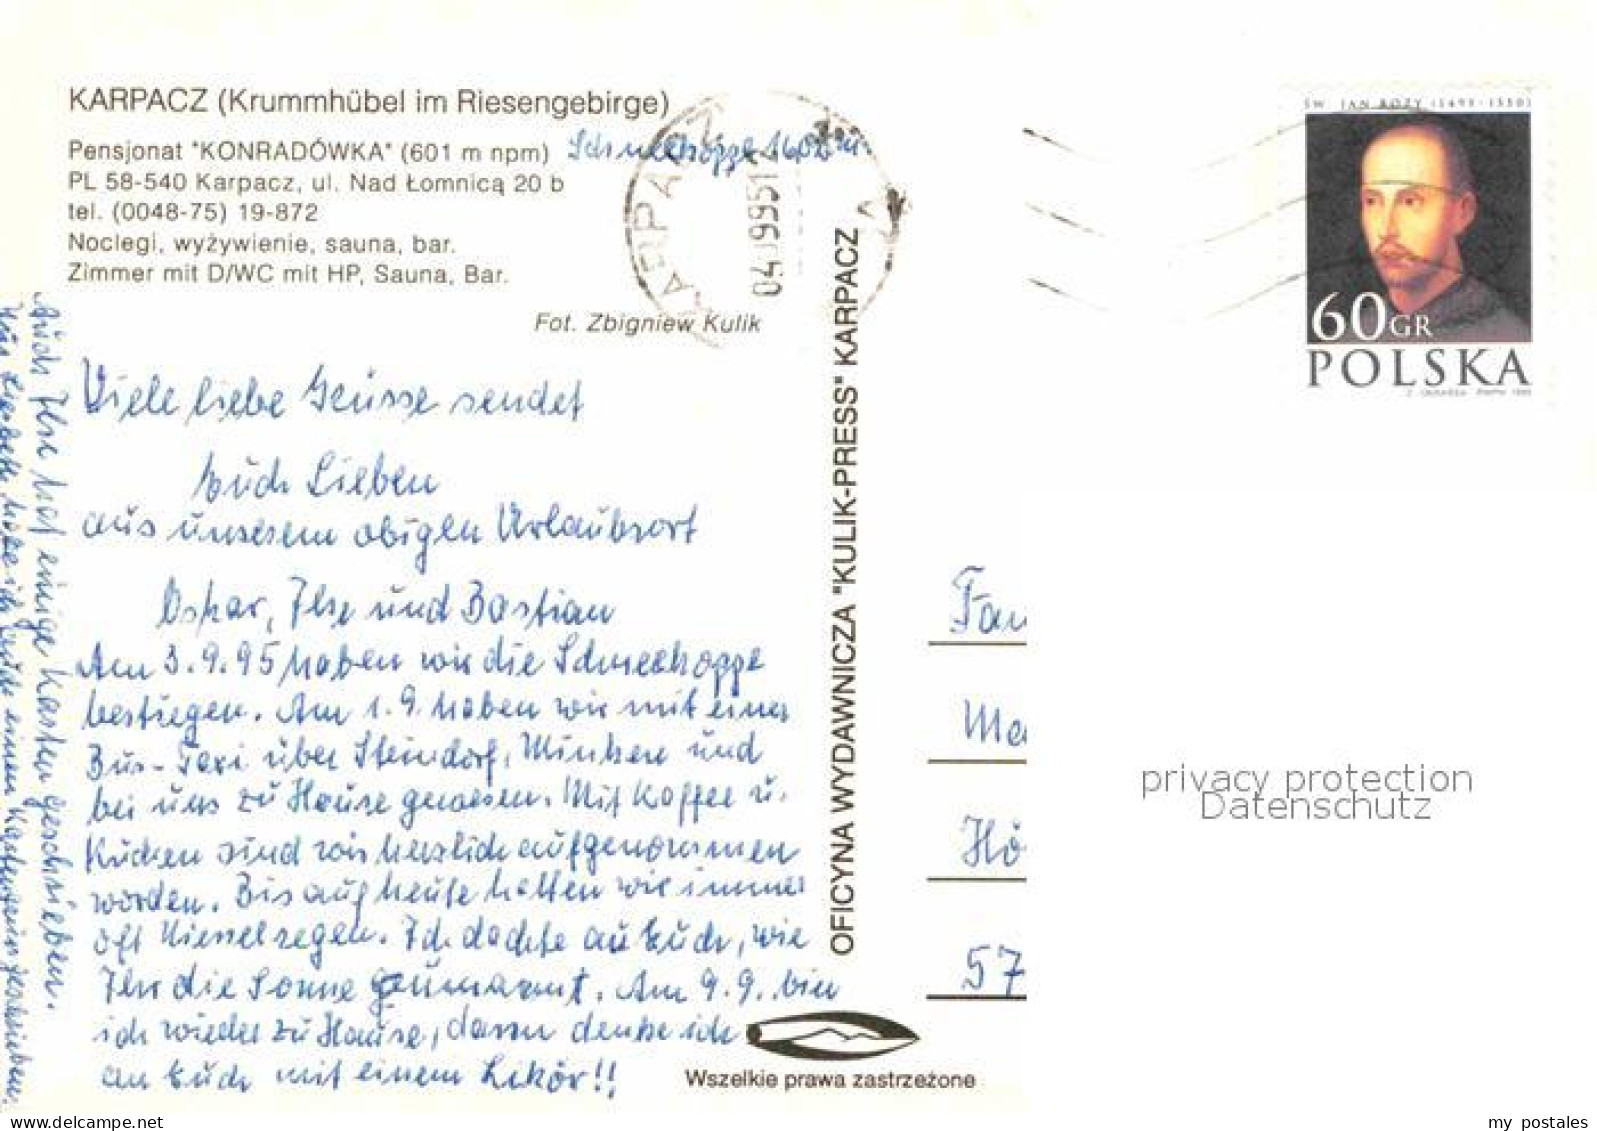 KARPACZ (Krummhübel im Riesengebirge)
Pensjonat "KONRADÓWKA" (601 m npm)
Schneekoppe 1602 m
PL 58-540 Karpacz, ul. Nad Łomnicą 20 b
tel. (0048-75) 19-872
Noclegi, wyżywienie, sauna, bar.
Zimmer mit D/WC mit HP, Sauna, Bar.
Fot. Zbigniew Kulik
KARPACZ
040995
ŚW. JAN BOŻY (1495-1550)
60GR
POLSKA
Viele liebe Grüsse sendet
Euch Lieben
aus unserem obigen Urlaubsort
Oskar, Ilse und Bastian
Am 3.9.95 haben wir die Schneekoppe
bestiegen. Am 1.9. haben wir mit einer
Bus-Taxi über Steindorf, und
bei uns zu Hause gewesen. Mit Kaffee u.
Kuchen sind wir herzlich aufgenommen
worden. Bis auf heute hatten wir immer
oft Nieselregen. Ich dachte an Euch, wie
Ihr die Sonne Am 9.9. bin
ich wieder zu Hause, dann denke ich
an Euch mit einem Likör!!
Auch Ilse hat einige Karten geschrieben.
habe ich auch einen Kartengruss geschrieben.
OFICYNA WYDAWNICZA "KULIK-PRESS" KARPACZ
Wszelkie prawa zastrzeżone
Fam
Me
Hö
57
privacy protection
Datenschutz
my_postales